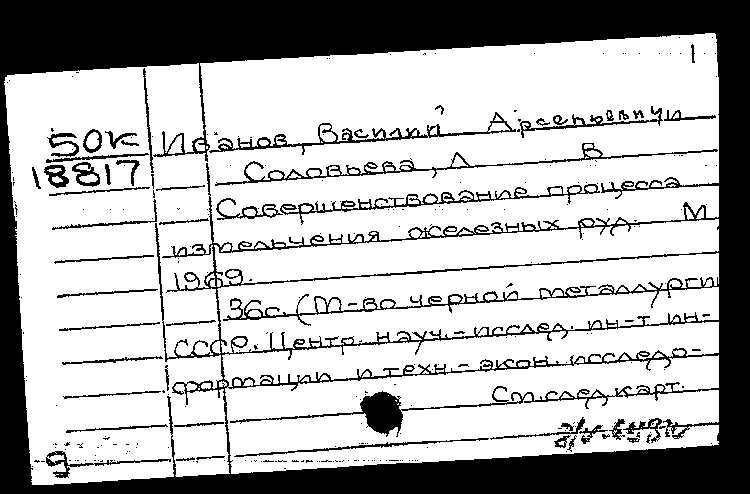 1
50К Иванов, Василий Арсеньевич
18817 Соловьева, Л В
Совершенствование процесса
измельчения железных руд. М
1969.
36с. (М-во черной металлургии
СССР. Центр. науч.-исслед. ин-т ин-
формации и техн.-экон. исследо-
См.след.карт.
9